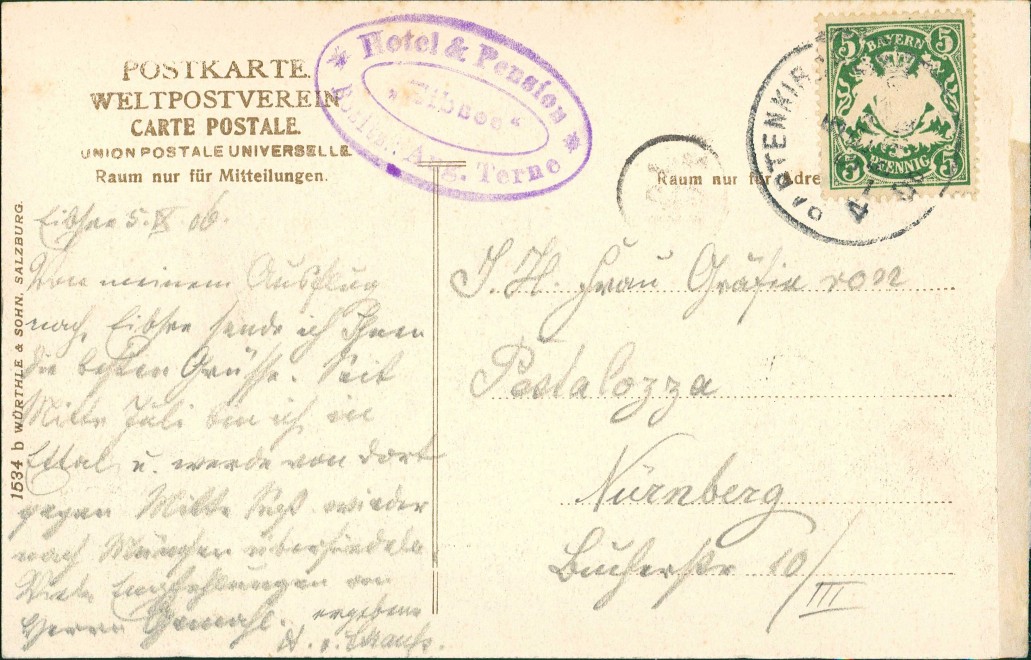 POSTKARTE.
WELTPOSTVEREIN
CARTE POSTALE.
UNION POSTALE UNIVERSELLE.
Raum nur für Mitteilungen.
Hotel & Pension
„Eibsee“
Besitz. Aug. Terne
Raum nur für Adre
BAYERN
5 5
5 PFENNIG 5
PARTENKIR
Eibsee 5. IX 06.
Von meinem Ausflug
nach Eibsee sende ich Ihnen
die besten Grüsse. Seit
Mitte Juli bin ich in
Ettal u. werde von dort
gegen Mitte Sept. wieder
nach München übersiedeln
Viele Empfehlungen an
Herrn Gemahl. ergebene
I. H. Frau Gräfin von
Pestalozza
Nürnberg
Bucherstr 10/
III
1534 b WÜRTHLE & SOHN, SALZBURG.